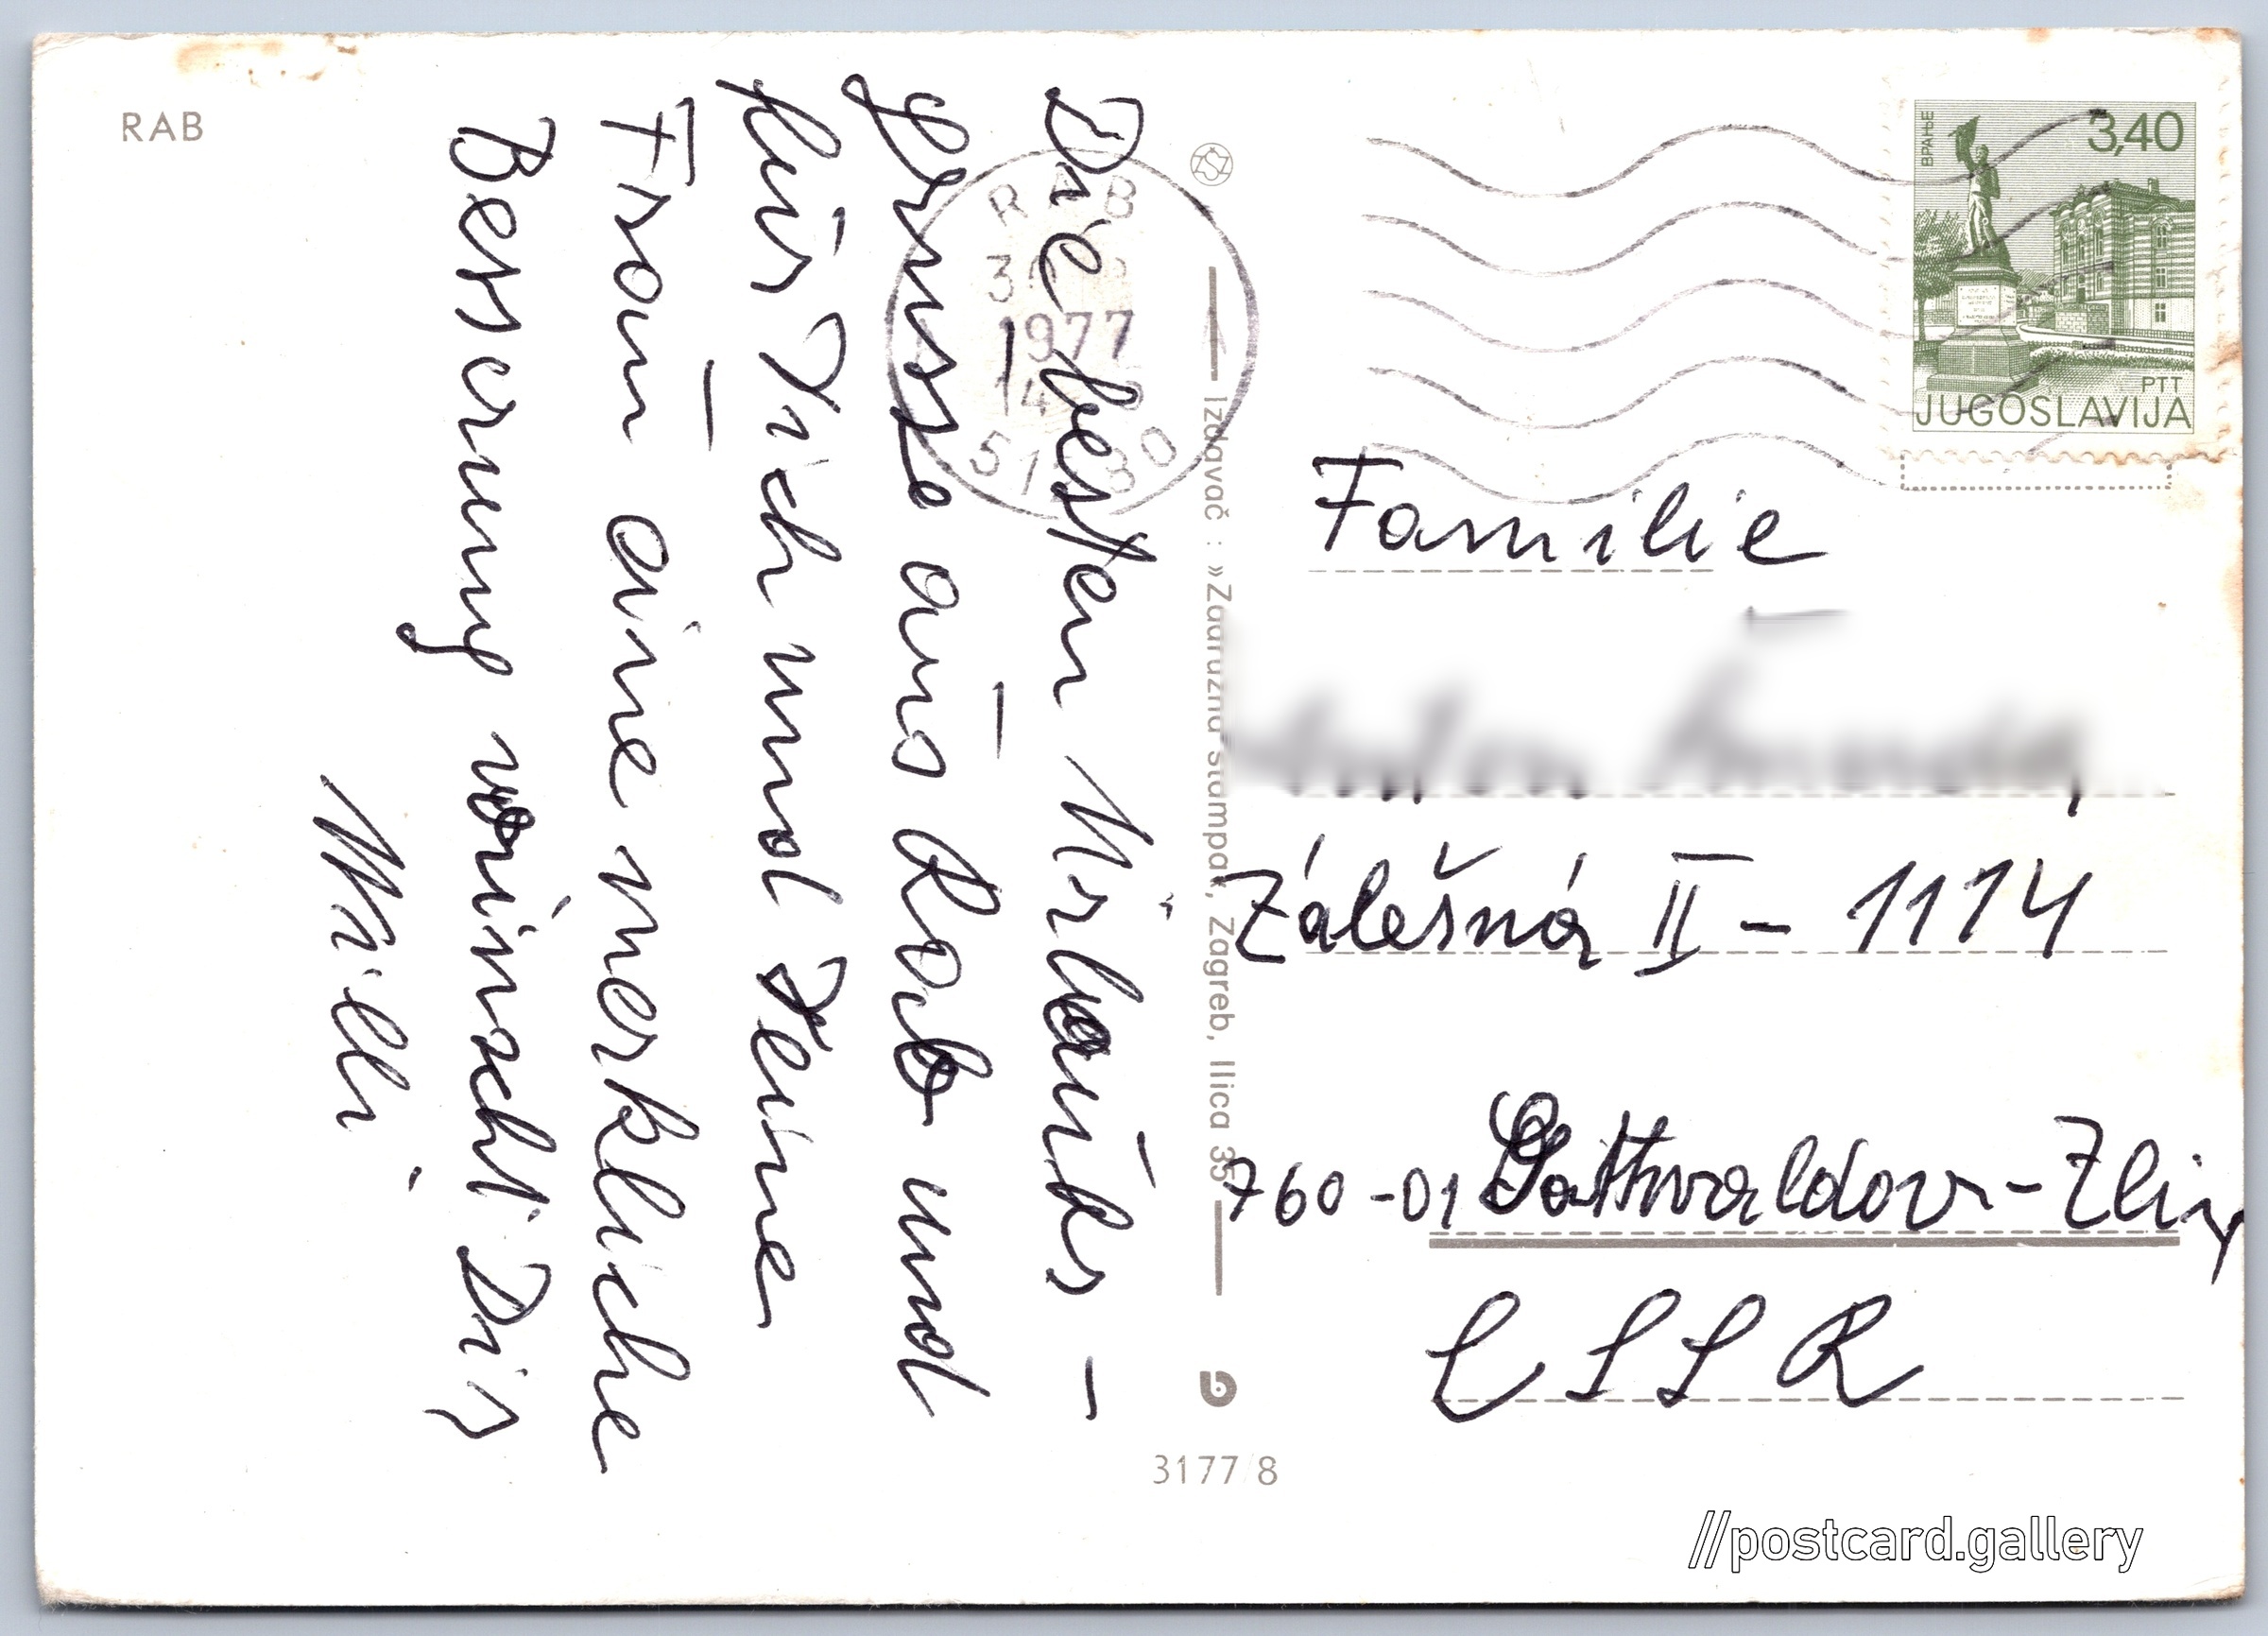 RAB
Die besten Urlaubs –
grüsse aus Rab und
für Dich und Deine
Frau eine merkliche
Besserung wünscht Dir
Willi
RAB
1977
14
Izdavač : »Zadružna štampa«, Zagreb, Ilica 35
3177/8
ВРАЊЕ
3,40
PTT
JUGOSLAVIJA
Familie
Zálešná II – 1114
760-01 Gottwaldov-Zlín
ČSSR
//postcard.gallery